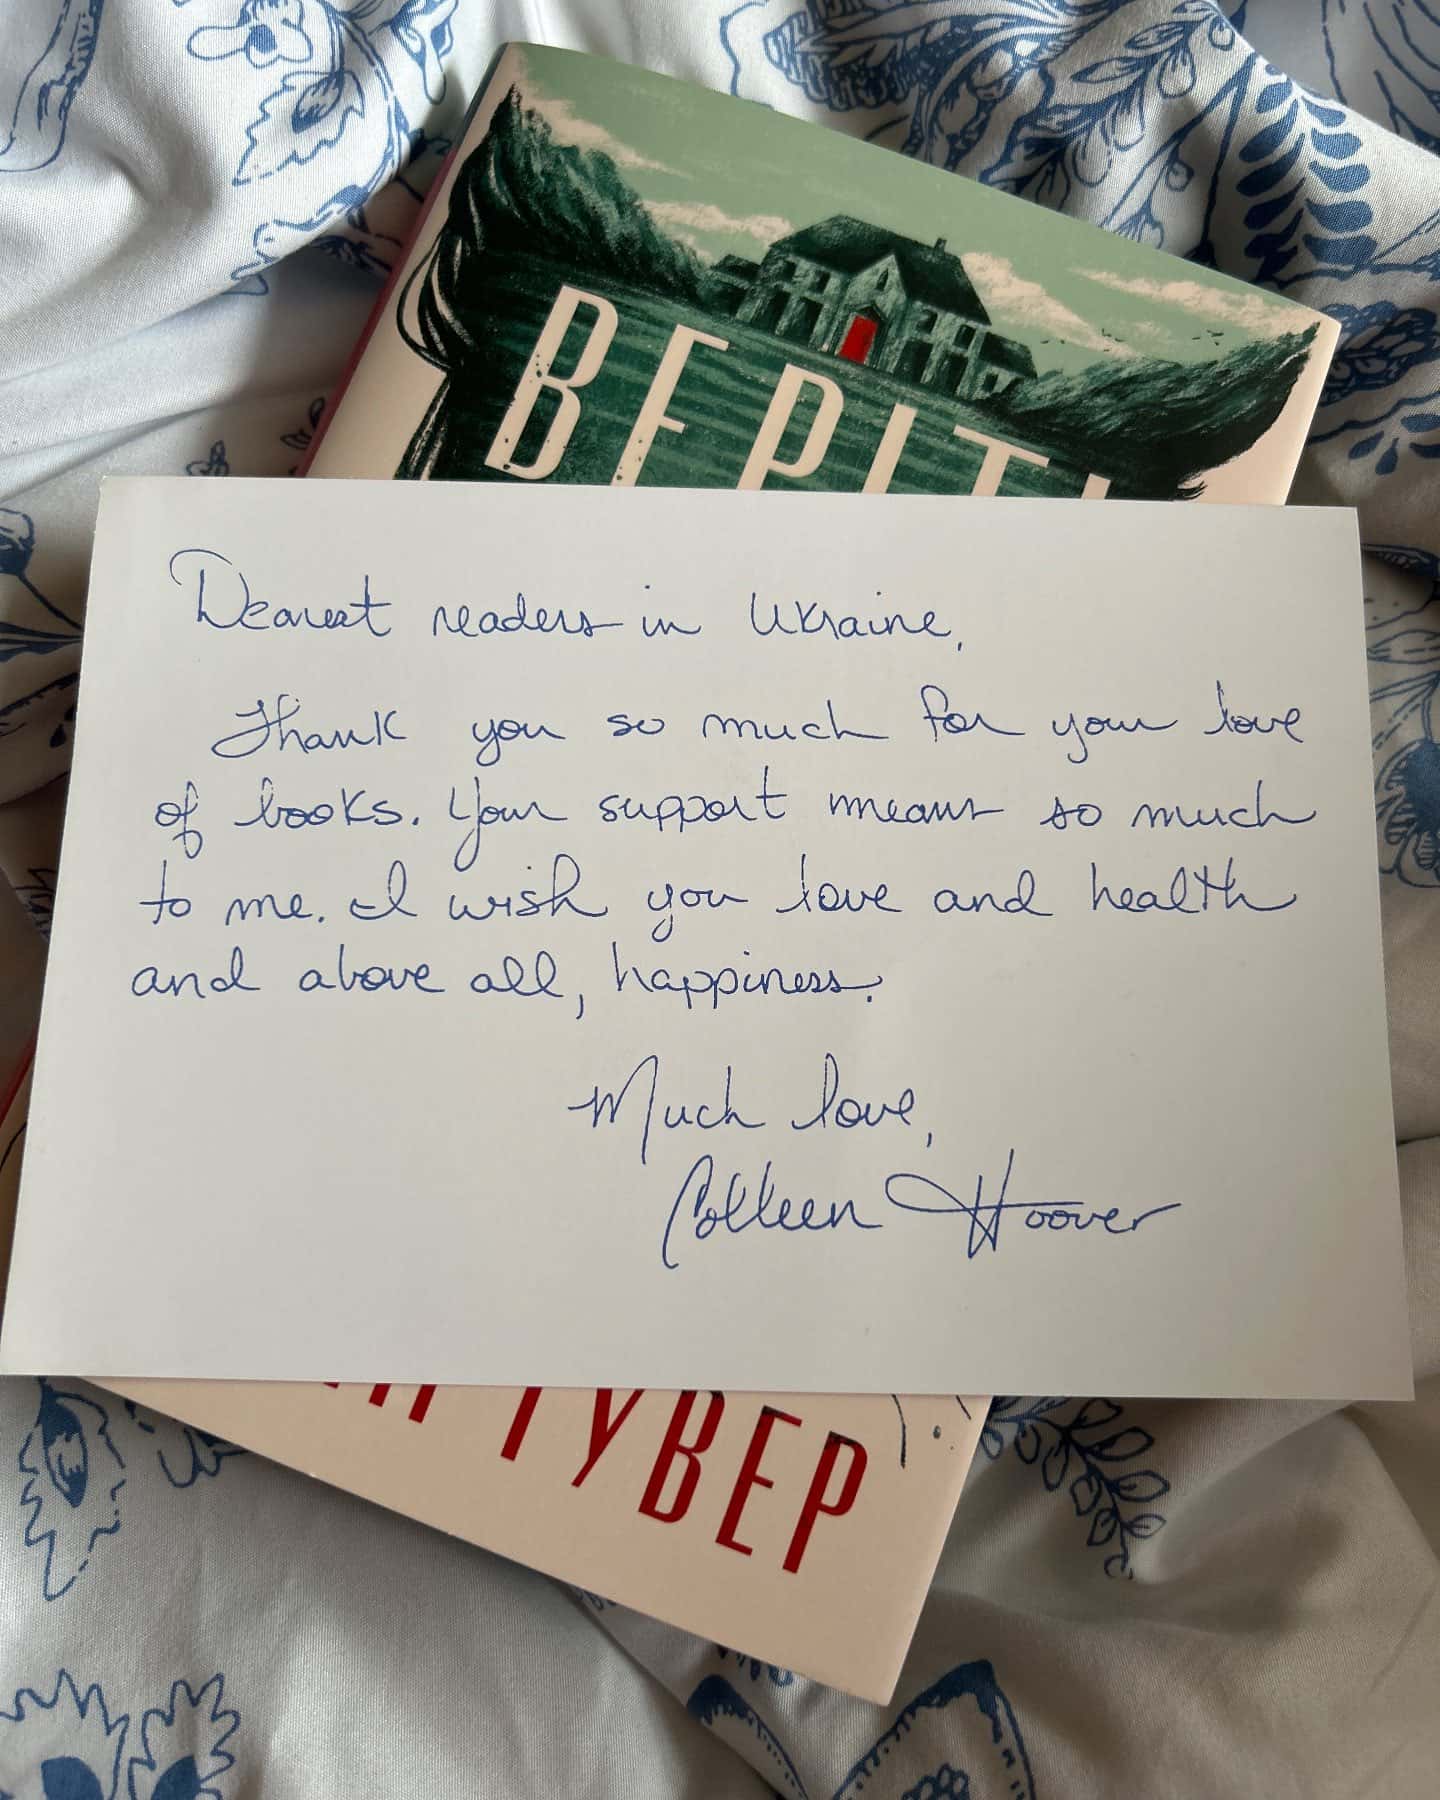 ВЕРІТІ
Dearest readers in Ukraine,
Thank you so much for your love
of books. Your support means so much
to me. I wish you love and health
and above all, happiness.
Much love,
Colleen Hoover
ГУВЕР